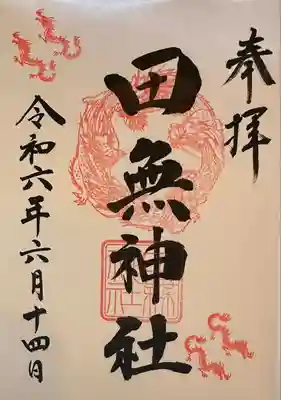 奉拝
田無神社
令和六年六月十四日